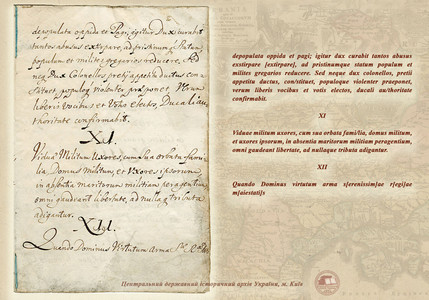 depopulata oppida et Pagi; igitur Dux curabit
tantos abusus extirpare, ad pristinumque statum
populum et milites gregarios reducere. Sed
neq Dux Colonellos, pretij appetitu ductus con-
stituet, populoq violenter praeponet, verum
liberis vocibus et Votis electos, Ducali au-
thoritate confirmabit.
XI.
Viduae Militum Uxores, cum sua orbata fami-
lia, Domus Militum, et Uxores ipsorum,
in absentia maritorum militiam peragentium,
omni gaudeant libertate, ad nullaq tributa
adigantur.
XII.
Quando Dominus Virtutum Arma
depopulata oppida et pagi; igitur dux curabit tantos abusus
exstirpare [extirpare], ad pristinumque statum populum et
milites gregarios reducere. Sed neque dux colonellos, pretii
appetitu ductus, con/stituet, populoque violenter praeponet,
verum liberis vocibus et votis electos, ducali au/thoritate
confirmabit.
XI
Viduae militum uxores, cum sua orbata fami/lia, domus militum,
et uxores ipsorum, in absentia maritorum militiam peragentium,
omni gaudeant libertate, ad nullaque tributa adigantur.
XII
Quando Dominus virtutum arma s[erenissim]ae r[egi]ae
m[aiestati]s
Центральний державний історичний архів України, м. Київ